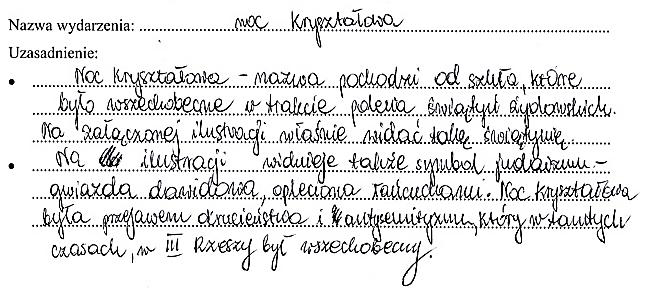 Nazwa wydarzenia: noc kryształowa
Uzasadnienie:
• Noc kryształowa – nazwa pochodzi od szkła, które
było wszechobecne w trakcie palenia świątyń żydowskich.
Na załączonej ilustracji właśnie widać taką świątynię
• Na ilustracji widnieje także symbol judaizmu –
gwiazda dawidowa, opleciona łańcuchami. Noc kryształowa
była przejawem okrucieństwa i antysemityzmu, który w tamtych
czasach, w III Rzeszy był wszechobecny.